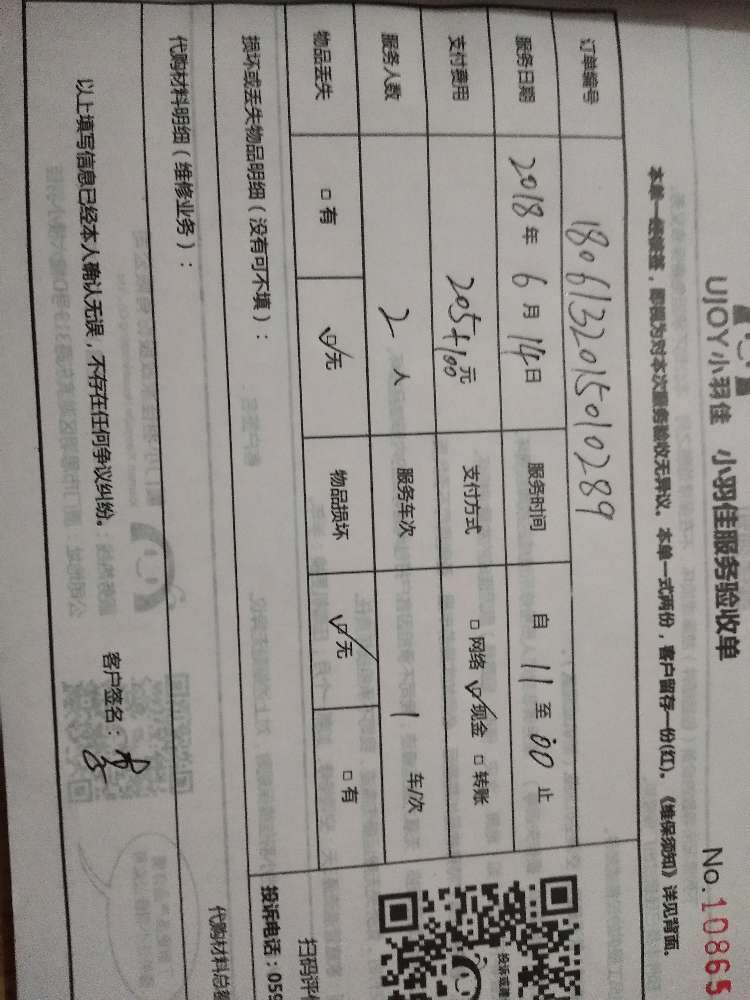 UJOY小羽佳 小羽佳服务验收单
No.10865
本单一经签署，即视为对本次服务验收无异议。本单一式两份，客户留存一份(红)。《维保须知》详见背面。
订单编号 1806132015010289
服务日期 2018年6月14日 服务时间 自 11 至 00 止
支付费用 205+100元 支付方式 □网络 ☑现金 □转账
服务人数 2人 服务车次 1 车/次
物品丢失 □有 ☑无 物品损坏 ☑无 □有
损坏或丢失物品明细（没有可不填）：
代购材料明细（维修业务）：
代购材料总
扫码评
投诉电话：059
以上填写信息已经本人确认无误，不存在任何争议纠纷。 客户签名：